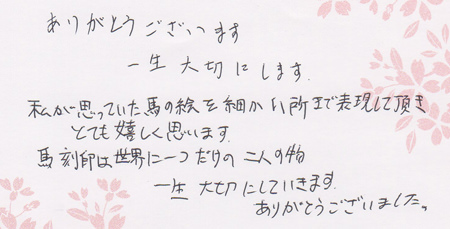 ありがとうございます
一生大切にします.
私が思っていた馬の絵を細かい所まで表現して頂き
とても嬉しく思います.
馬刻印は世界に一つだけの二人の物
一生大切にしていきます.
ありがとうございました。